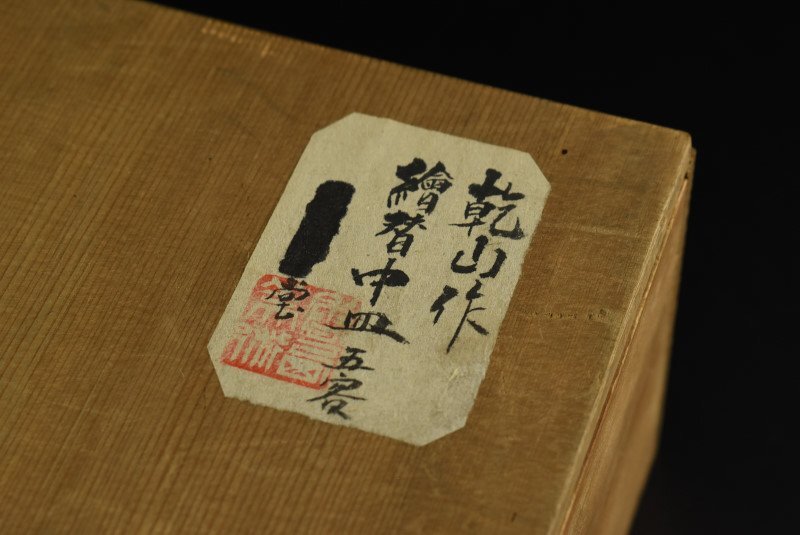 乾山作
繪替中皿五客
堂